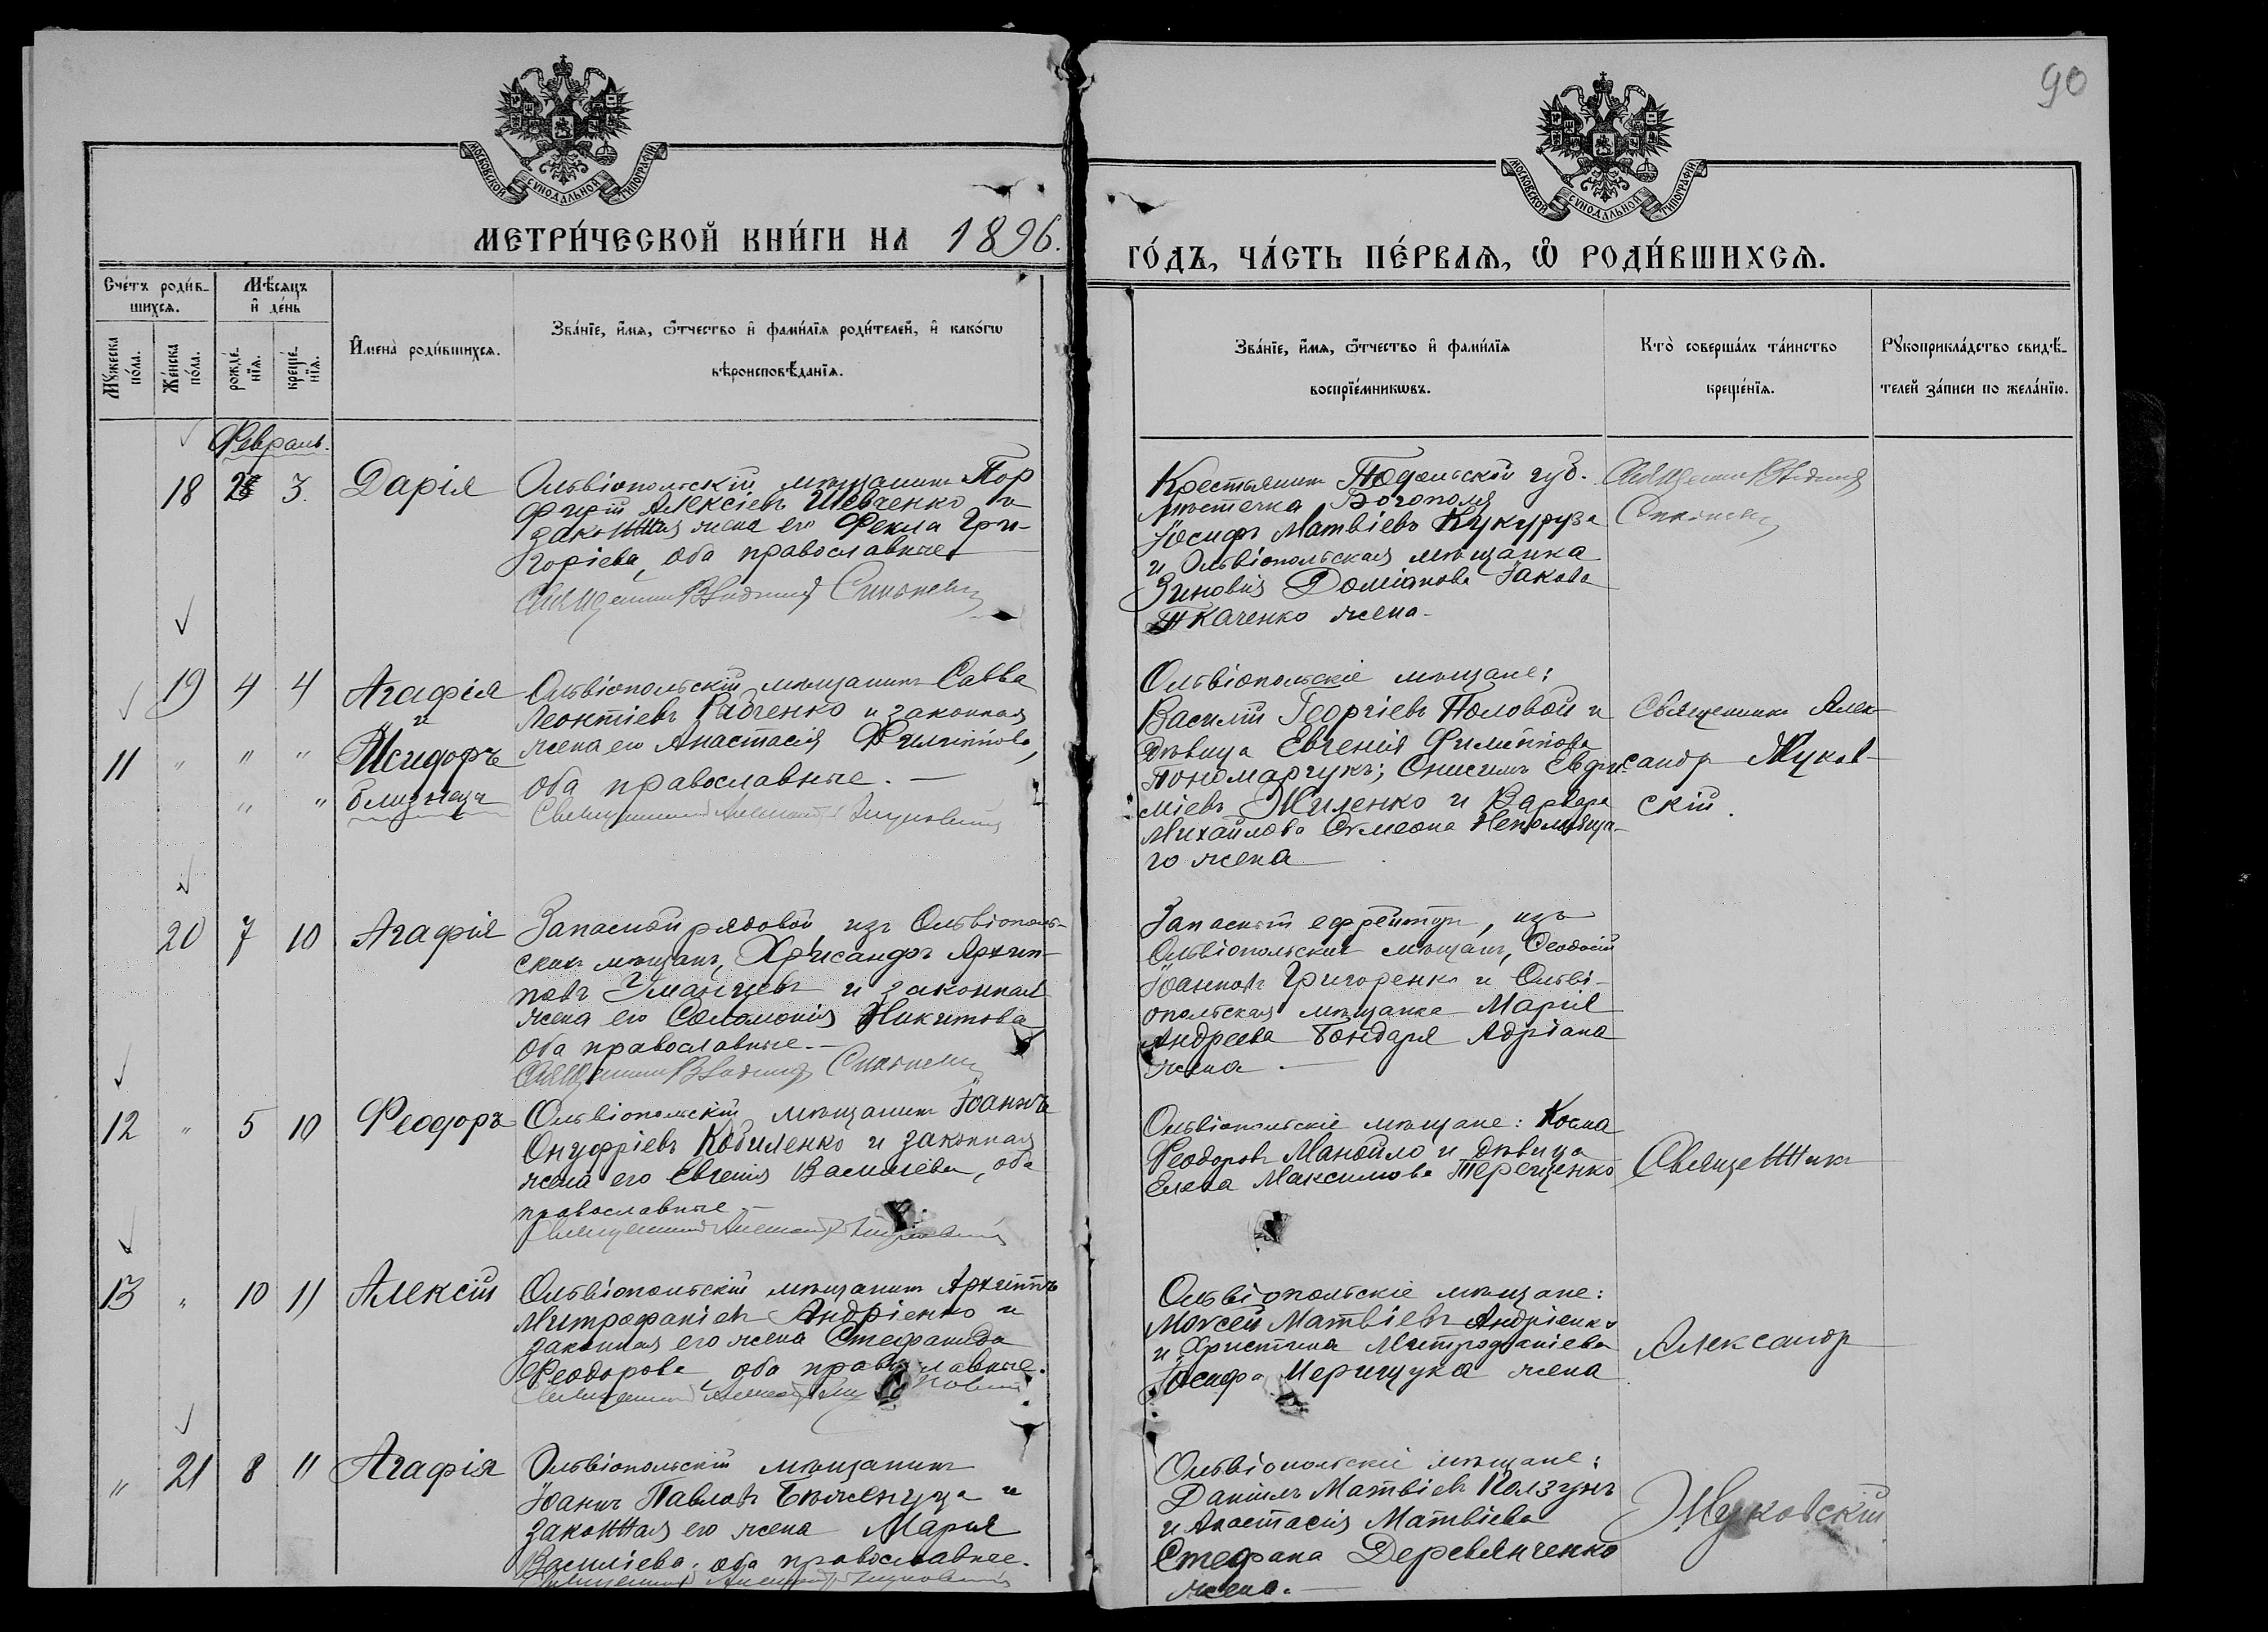 90
МОСКОВСКОЙ СУНОДАЛЬНОЙ ТИПОГРАФІИ
МОСКОВСКОЙ СУНОДАЛЬНОЙ ТИПОГРАФІИ
МЕТРИ́ЧЕСКОЙ КНИ́ГИ НА 1896.
ГО́ДЪ, ЧА́СТЬ ПЕ́РВАѦ, Ѿ РОДИ́ВШИХСѦ.
Сче́тъ роди́в-
шихсѧ.
Мѣ́сѧцъ
и҆ де́нь
Мꙋ́жеска
по́ла.
Же́нска
по́ла.
рожде́-
нїѧ.
креще́-
нїѧ.
И҆мена̀ роди́вшихсѧ.
Зва́нїе, и҆́мѧ, ѻ҆́тчество и҆ фами́лїѧ роди́телей, и҆ како́гѡ
вѣроисповѣ́данїѧ.
Зва́нїе, и҆́мѧ, ѻ҆́тчество и҆ фами́лїѧ
воспрїе́мникѡвъ.
Кто̀ соверша́лъ та́инство
креще́нїѧ.
Рꙋкоприкла́дство свидѣ́-
телей за́писи по жела́нїю.
Февраль.
18 3. Дарія
Ольвіопольскій мѣщанинъ Пор
фирій Алексіевъ Шевченко и
законная жена его Фекла Гри-
горіева, оба православные
Священникъ Владимір
Крестьянинъ Подольской губ.
мѣстечка Богополя
Іосифъ Матвіевъ Кукуруза
и Ольвіопольская мѣщанка
Зиновія Доміанова Іакова
Ткаченко жена.
Священникъ Владимір
19 4 4 Агафія
и
11 " " " Исидоръ
" " близнецы
Ольвіопольскій мѣщанинъ Савва
Леонтіевъ Рабченко и законная
жена его Анастасія Филиппова,
оба православные. —
Священникъ Александръ Жуковскій
Ольвіопольскіе мѣщане:
Василій Георгіевъ Половой и
дѣвица Евгенія Филиппова
Пономарчукъ; Онисимъ Евфи-
міевъ Жиленко и Варвара
Михайлова Сѵмеона Непомнюща-
го жена
Священникъ Алек-
сандр Жуков-
скій.
20 7 10 Агафія
Запасной рядовой, изъ Ольвіополь-
скихъ мѣщанъ, Хрисандръ Архип-
повъ Уманцевъ и законная
жена его Соломонія Никитова
оба православные. —
Священникъ Владимір
Запасный ефрейторъ, изъ
Ольвіопольскихъ мѣщанъ, Ѳеодосій
Іоанновъ Григоренко и Ольві-
опольская мѣщанка Марія
Андреева Бондаря Адріана
жена. —
12 " 5 10 Феодоръ
Ольвіопольскій мѣщанинъ Іоаннъ
Онуфріевъ Кобиленко и законная
жена его Евгенія Василіева, оба
православные —
Священникъ Александръ Жуковскій
Ольвіопольскіе мѣщане: Косма
Феодоровъ Манойло и дѣвица
Елена Максимова Терещенко
Священникъ
13 " 10 11 Алексій
Ольвіопольскій мѣщанинъ Архиппъ
Митрофаніевъ Андріенко и
законная его жена Стефанида
Феодорова, оба православные.
Священникъ Александръ Жуковскій
Ольвіопольскіе мѣщане:
Моѵсей Матвіевъ Андріенко
и Христина Митрофаніева
Іосифа Мерищука жена
Александр
" 21 8 11 Агафія
Ольвіопольскій мѣщанинъ
Іоаннъ Павловъ и
законная его жена Марія
Василіева, оба православные.
Священникъ Александръ Жуковскій
Ольвіопольскіе мѣщане:
Даніилъ Матвіевъ Ползунъ
и Анастасія Матвіева
Стефана Деревянченко
жена. —
Жуковскій